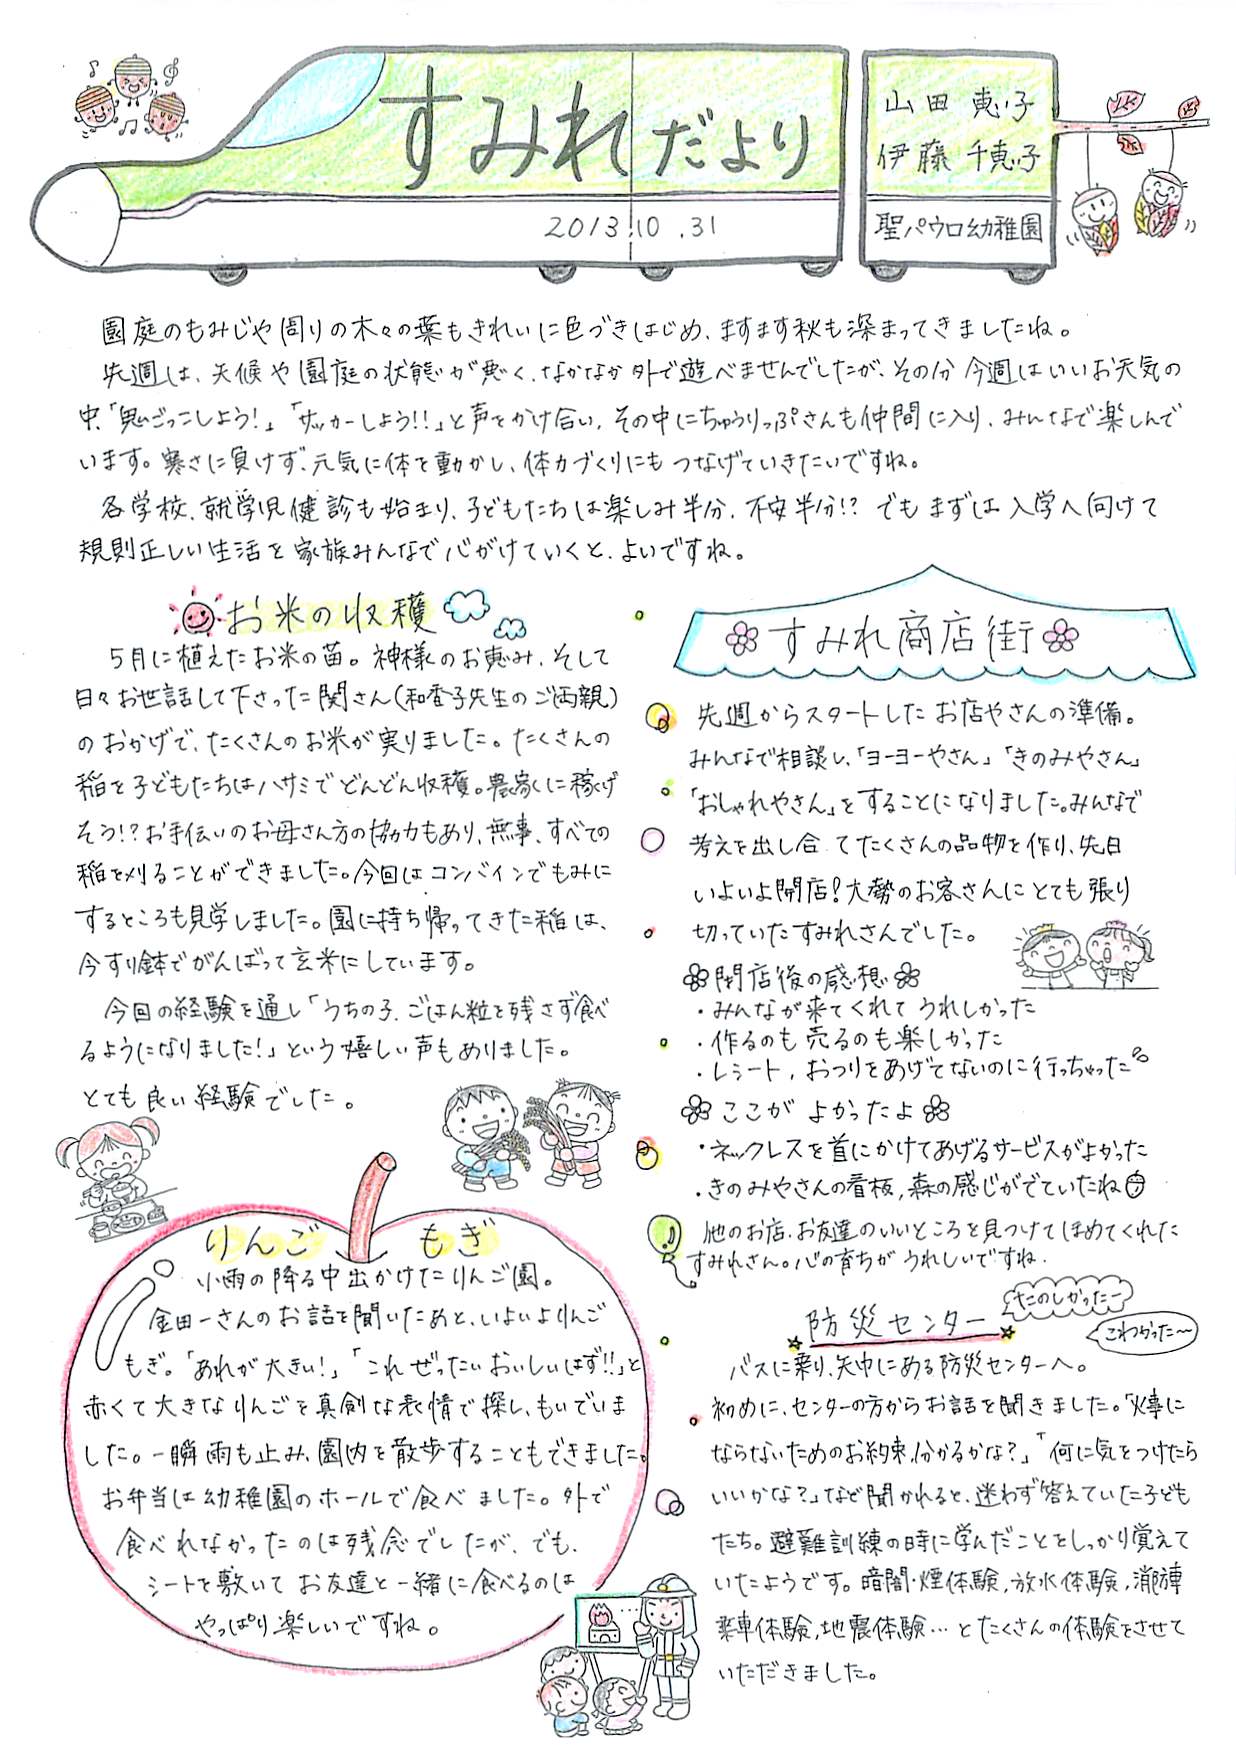 すみれだより
2013.10.31
山田 恵子
伊藤 千恵子
聖パウロ幼稚園
園庭のもみじや周りの木々の葉もきれいに色づきはじめ、ますます秋も深まってきましたね。
先週は、天候や園庭の状態が悪く、なかなか外で遊べませんでしたが、その分今週はいいお天気の
中、「鬼ごっこしよう!」「サッカーしよう!!」と声をかけ合い、その中にちゅうりっぷさんも仲間に入り、みんなで楽しんで
います。寒さに負けず、元気に体を動かし、体力づくりにもつなげていきたいですね。
各学校、就学児健診も始まり、子どもたちは楽しみ半分、不安半分!? でもまずは入学へ向けて
規則正しい生活を家族みんなで心がけていくと、よいですね。
お米の収穫
5月に植えたお米の苗。神様のお恵み、そして
日々お世話して下さった関さん(和香子先生のご両親)
のおかげで、たくさんのお米が実りました。たくさんの
稲を子どもたちはハサミでどんどん収穫。農家に稼げ
そう!?お手伝いのお母さん方の協力もあり、無事、すべての
稲を刈ることができました。今回はコンバインでもみに
するところも見学しました。園に持ち帰ってきた稲は、
今すり鉢でがんばって玄米にしています。
今回の経験を通し「うちの子、ごはん粒を残さず食べ
るようになりました!」という嬉しい声もありました。
とても良い経験でした。
りんごもぎ
小雨の降る中出かけたりんご園。
金田一さんのお話を聞いたあと、いよいよりんご
もぎ。「あれが大きい!」「これぜったいおいしいはず!!」と
赤くて大きなりんごを真剣な表情で探し、もいでいま
した。一瞬雨も止み、園内を散歩することもできました。
お弁当は幼稚園のホールで食べました。外で
食べれなかったのは残念でしたが、でも、
シートを敷いてお友達と一緒に食べるのは
やっぱり楽しいですね。
すみれ商店街
先週からスタートしたお店やさんの準備。
みんなで相談し、「ヨーヨーやさん」「きのみやさん」
「おしゃれやさん」をすることになりました。みんなで
考えを出し合 てたくさんの品物を作り、先日
いよいよ開店!大勢のお客さんにとても張り
切っていたすみれさんでした。
開店後の感想
・みんなが来てくれてうれしかった
・作るのも売るのも楽しかった
・レシート、おつりをあげてないのに行っちゃった
ここがよかったよ
・ネックレスを首にかけてあげるサービスがよかった
・きのみやさんの看板、森の感じがでていたね
他のお店、お友達のいいところを見つけてほめてくれた
すみれさん。心の育ちがうれしいですね。
防災センター
たのしかったー
こわかった〜
バスに乗り、矢巾にある防災センターへ。
初めに、センターの方からお話を聞きました。「火事に
ならないためのお約束、分かるかな?」「何に気をつけたら
いいかな?」など聞かれると、迷わず答えていた子ども
たち。避難訓練の時に学んだことをしっかり覚えて
いたようです。暗闇・煙体験、放水体験、消防車
乗車体験、地震体験…とたくさんの体験をさせて
いただきました。